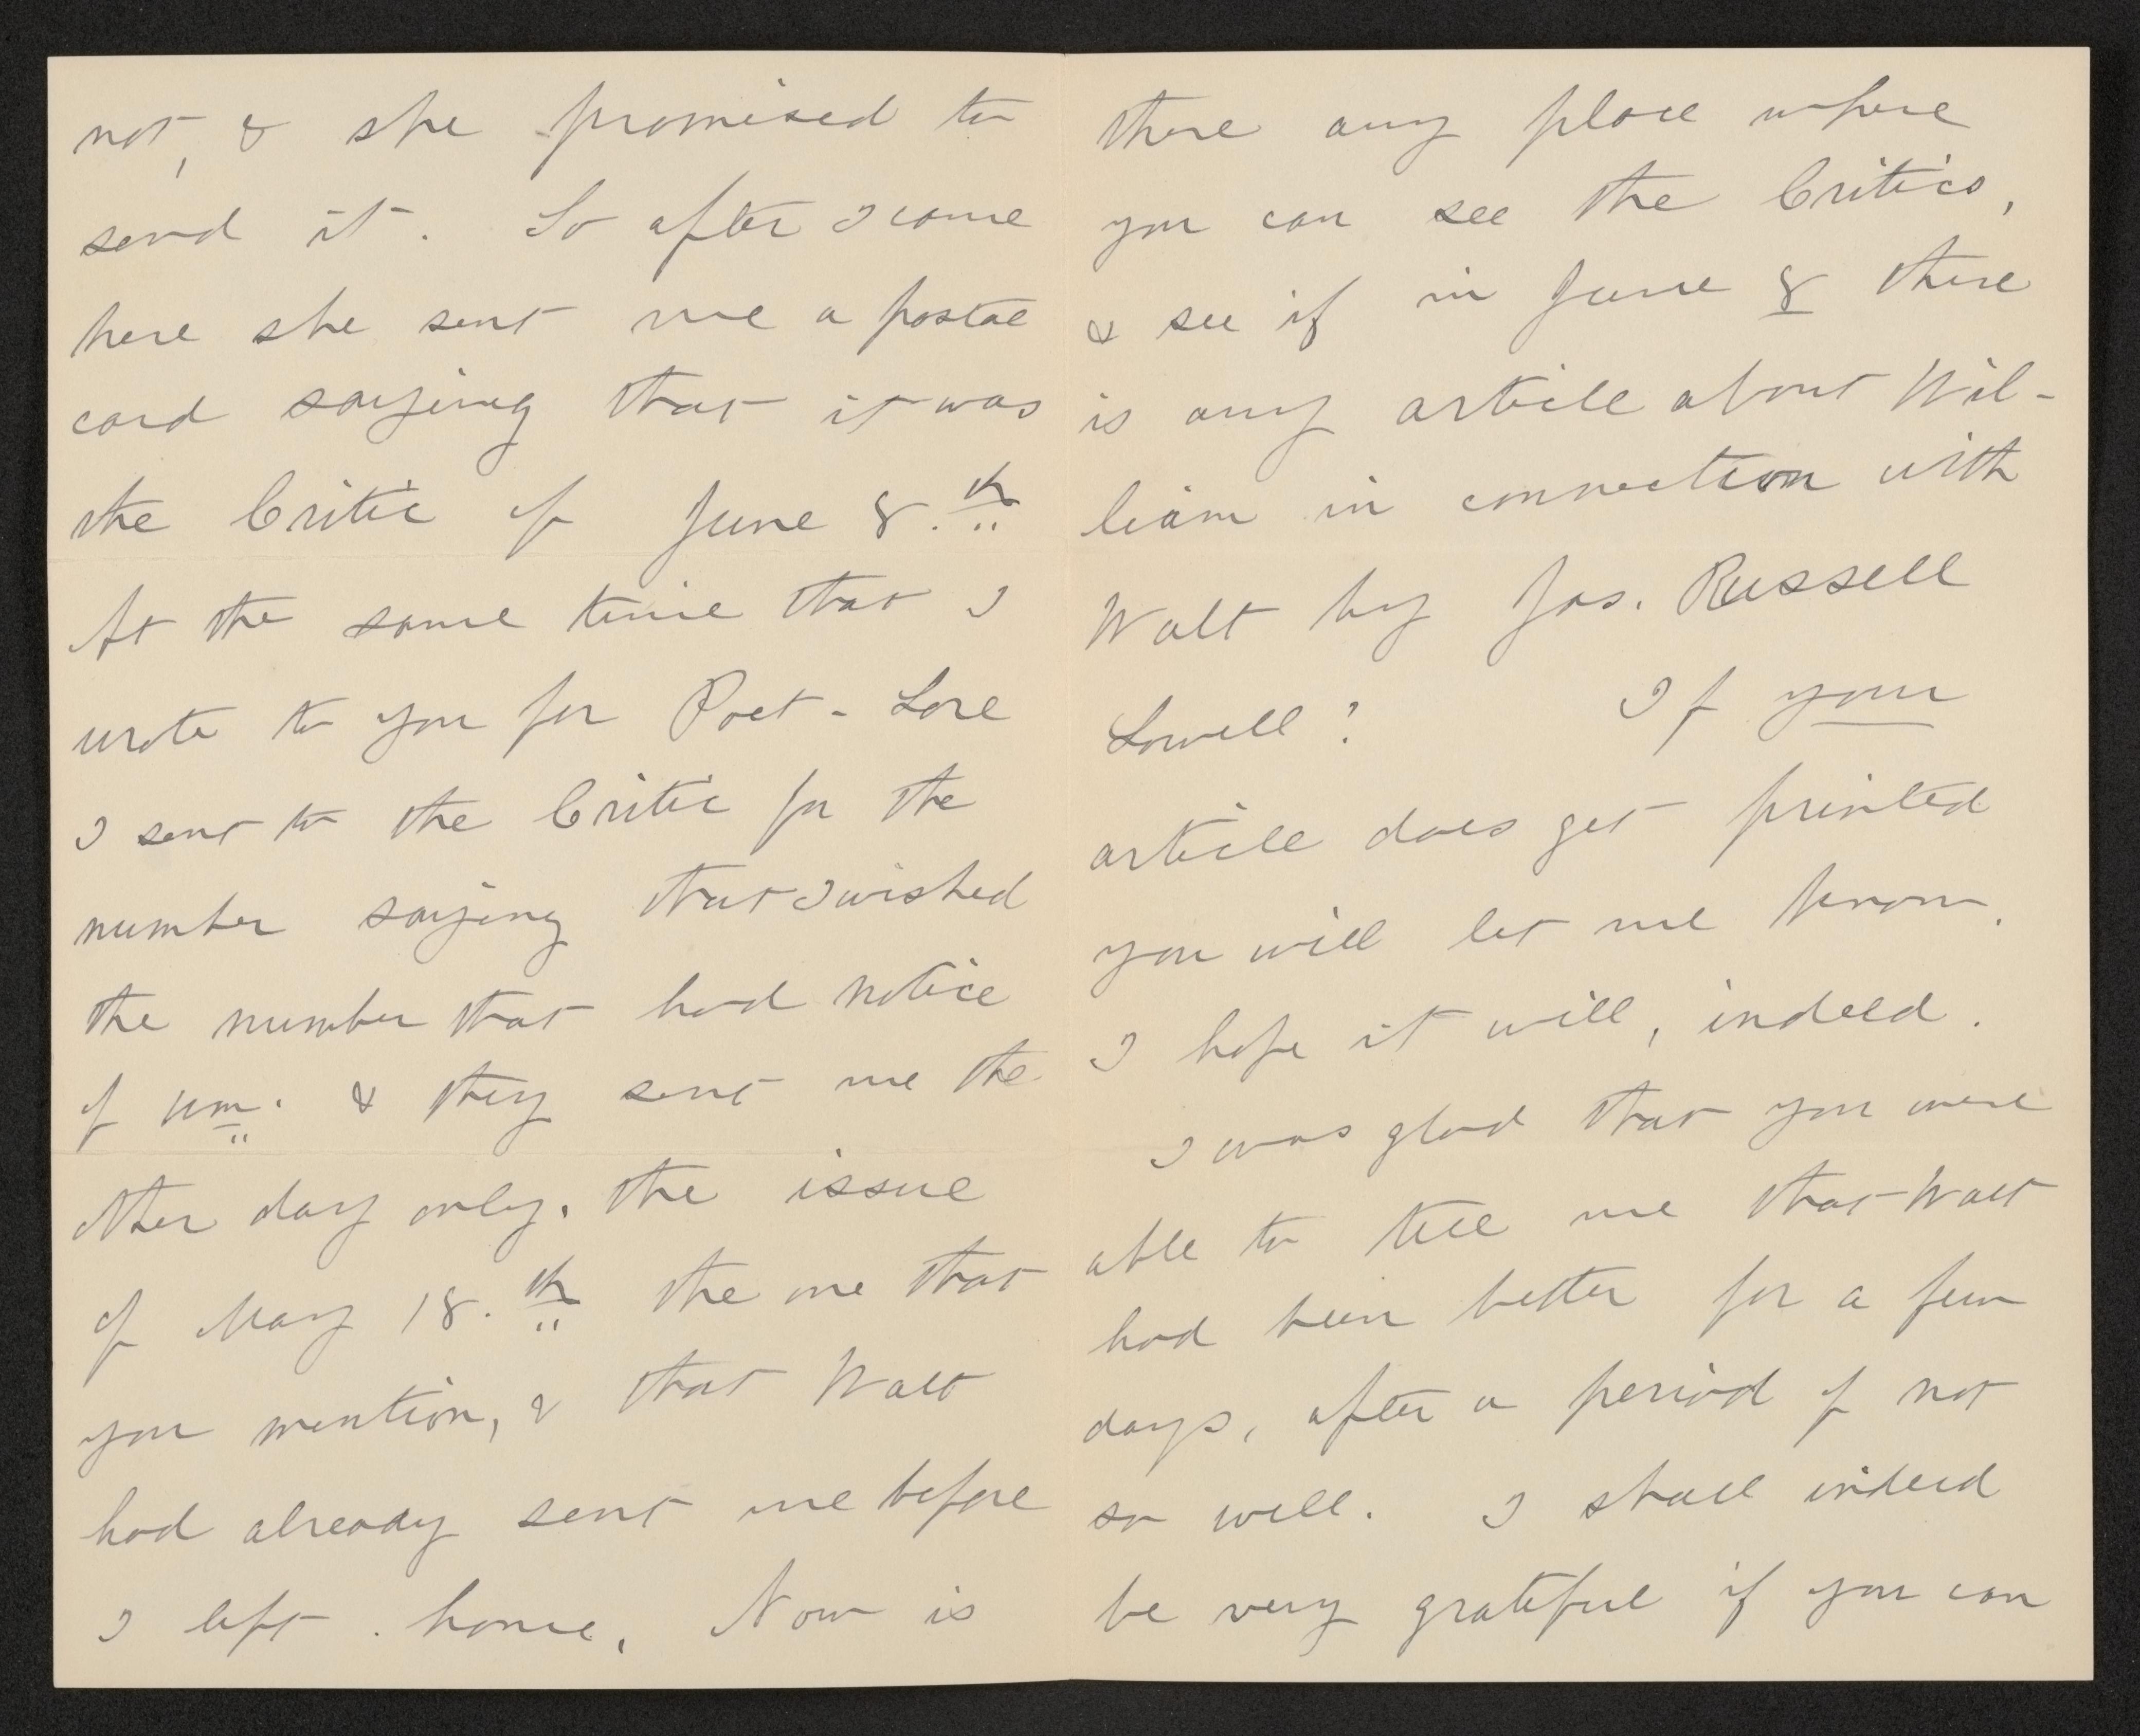 not, & she promised to
send it. So after I came
here she sent me a postal
card saying that it was
the Critic of June 8.th
At the same time that I
wrote to you for Poet-Lore
I sent to the Critic for the
number saying that I wished
the number that had notice
of Wm. & they sent me the
other day only. the issue
of May 18.th the one that
you mention, & that Walt
had already sent me before
I left home. Now is
there any place where
you can see the Critics,
& see if in June 8 there
is any article about Wil-
liam in connection with
Walt by Jas. Russell
Lowell? If your
article does get printed
you will let me know.
I hope it will, indeed.
I was glad that you were
able to tell me that Walt
had been better for a few
days, after a period of not
so well. I shall indeed
be very grateful if you can